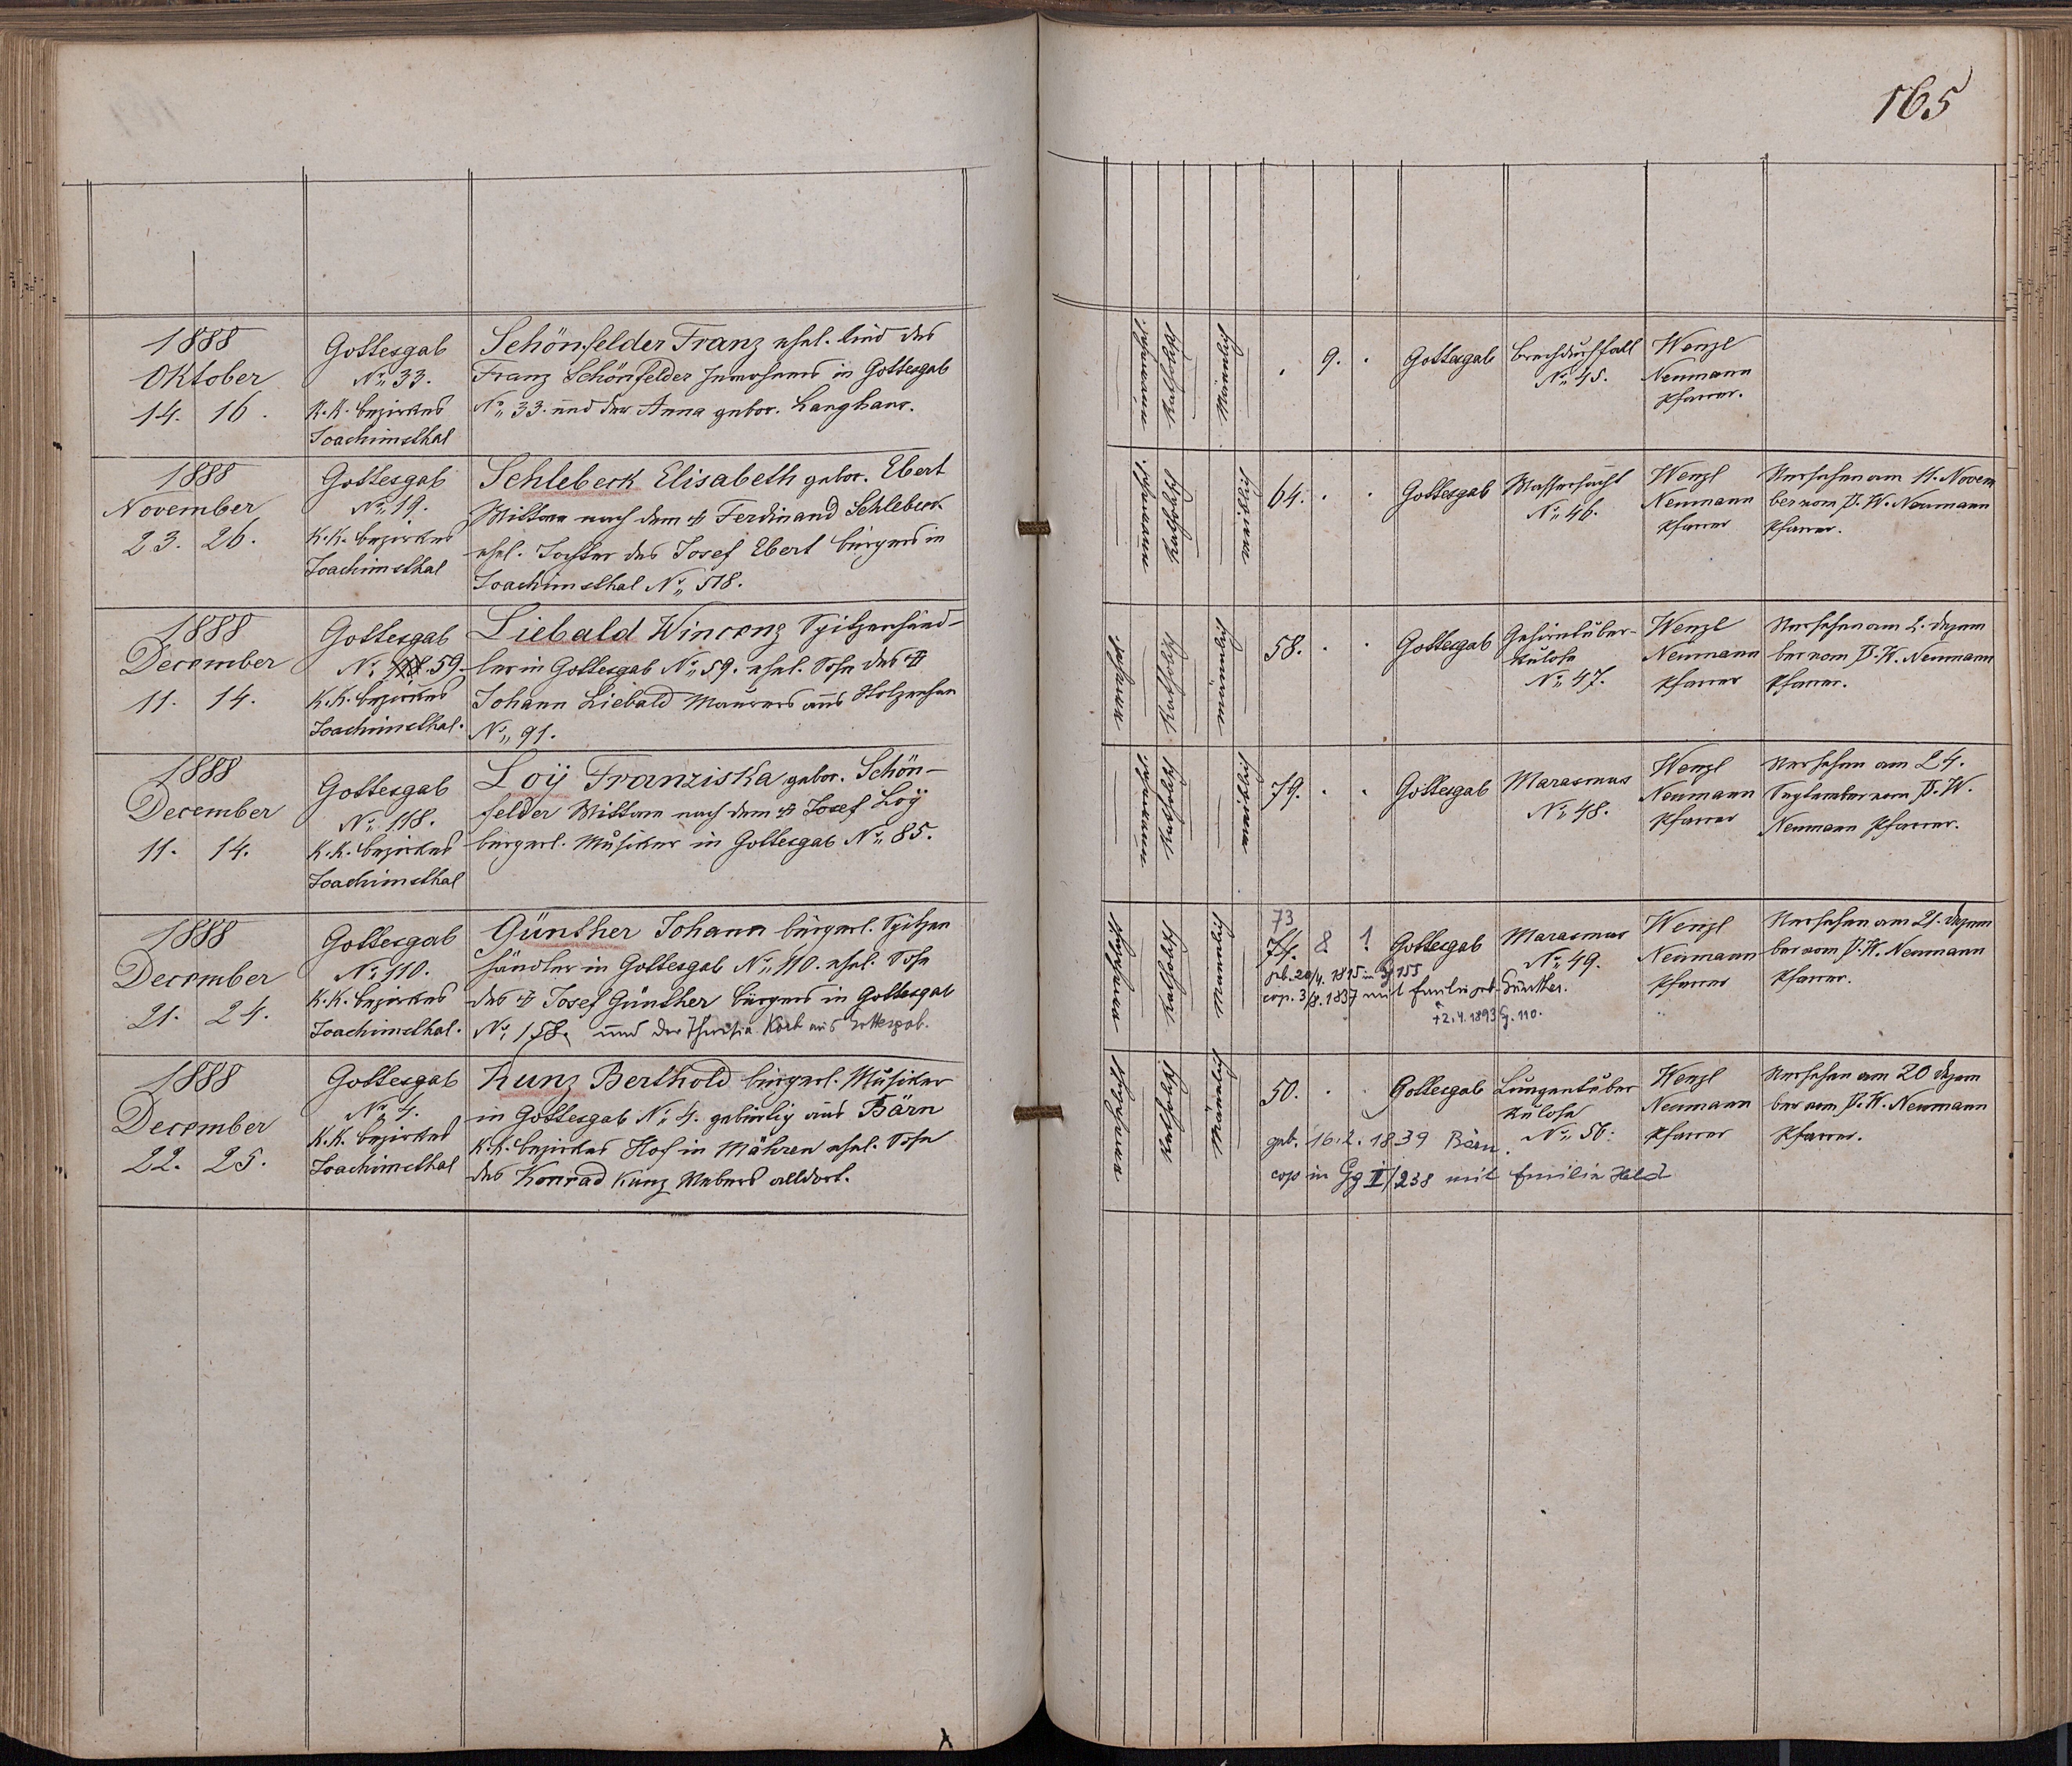 165
1888
Oktober
14. 16.
Gottesgab
No 33.
K.K. Bezirkes
Joachimsthal
Schönfelder Franz ehel. Kind des
Franz Schönfelder Inwohners in Gottesgab
No 33. und der Anna gebor. Langhans.
Katholisch
Männlich
. 9. .
Gottesgab
Brechdurchfall
No 45.
Wenzl
Neumann
Pfarrer.
1888
November
23. 26.
Gottesgab
No 19.
K.K. Bezirkes
Joachimsthal
Schlebeck Elisabeth gebor. Ebert
Wittwe nach dem † Ferdinand Schlebeck
ehel. Tochter des Josef Ebert Bürgers in
Joachimsthal No 518.
Katholisch
weiblich
64. . .
Gottesgab
Wassersucht
No 46.
Wenzl
Neumann
Pfarrer
Versehen am 11. Novem
ber vom P. W. Neumann
Pfarrer.
1888
December
11. 14.
Gottesgab
No 118. 59.
K.K. Bezirkes
Joachimsthal.
Liebald Vincenz Spitzenhänd-
ler in Gottesgab No 59. ehel. Sohn des †
Johann Liebald Maurers aus Holzenhan
No 91.
Katholisch
männlich
58. . .
Gottesgab
Gehirntuber-
kulose
No 47.
Wenzl
Neumann
Pfarrer
Versehen am 2. Dezem
ber vom P. W. Neumann
Pfarrer.
1888
December
11. 14.
Gottesgab
No 118.
K.K. Bezirkes
Joachimsthal
Loÿ Franziska gebor. Schön-
felder Wittwe nach dem † Josef Loÿ
bürgerl. Musiker in Gottesgab No 85.
Katholisch
weiblich
79. . .
Gottesgab
Marasmus
No 48.
Wenzl
Neumann
Pfarrer
Versehen am 24.
September vom P. W.
Neumann Pfarrer.
1888
December
21. 24.
Gottesgab
No 110.
K.K. Bezirkes
Joachimsthal.
Günther Johann bürgerl. Spitzen
händler in Gottesgab No 110. ehel. Sohn
des † Josef Günther Bürgers in Gottesgab
No 158. und der Theresia Korb aus Gottesgab.
Katholisch
Männlich
73
8 1
Gottesgab
Marasmus
No 49.
geb. 20/4. 1815 in 155
cop. 3/8. 1837 mit Emilie geb. Günther.
† 2.4.1893 G. 110.
Wenzl
Neumann
Pfarrer
Versehen am 21. Dezem
ber vom P. W. Neumann
Pfarrer.
1888
December
22. 25.
Gottesgab
No 4.
K.K. Bezirkes
Joachimsthal
Kunz Berthold bürgerl. Musiker
in Gottesgab No 4. gebürtig aus Bärn
K.K. Bezirkes Hof in Mähren ehel. Sohn
des Konrad Kunz Webers alldort.
Katholisch
Männlich
50. . .
Gottesgab
Lungentuber
kulose
No 50.
geb. 16.2.1839 Bärn.
cop in Gg II/238 mit Emilie Held
Wenzl
Neumann
Pfarrer
Versehen am 20 Dezem
ber vom P. W. Neumann
Pfarrer.